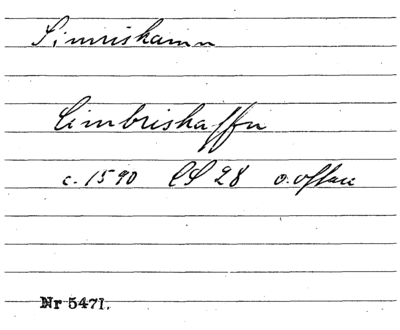 Simrishamn
Cimbrishaffn
c. 1590 CS 28 o. oftare
Nr 5471.